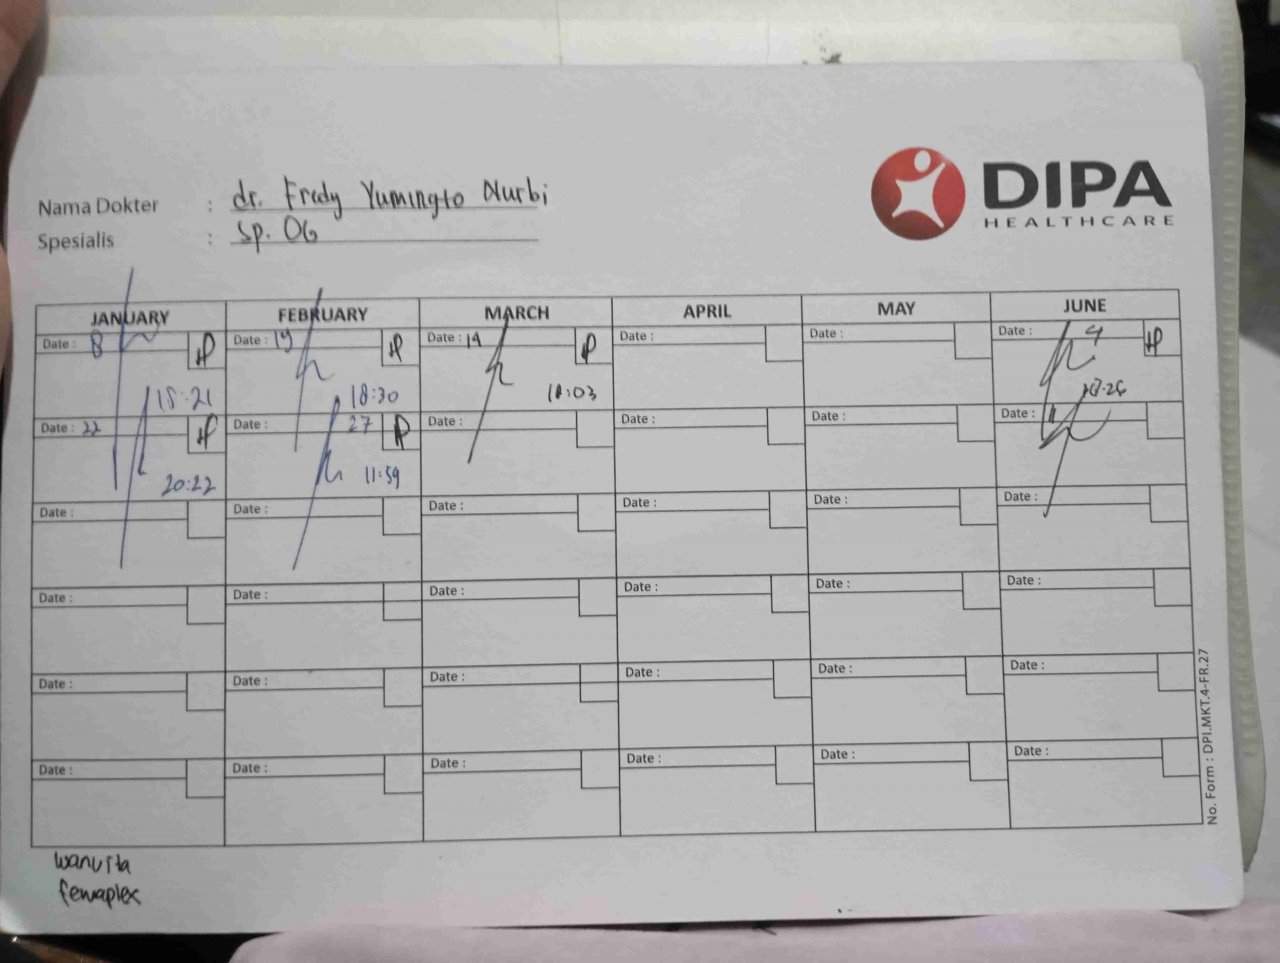 DIPA
HEALTHCARE
Nama Dokter : dr. Fredy Yumingto Nurbi
Spesialis : Sp. OG
JANUARY FEBRUARY MARCH APRIL MAY JUNE
Date : 8 Date : 19 Date : 14 Date : Date : Date : 4
18:30 18:03
Date : 22 Date : 27 Date : Date : Date : Date : 11
20:22 11:59
Date : Date : Date : Date : Date : Date :
Date : Date : Date : Date : Date : Date :
Date : Date : Date : Date : Date : Date :
Date : Date : Date : Date : Date : Date :
No. Form : DPI.MKT.4-FR.27
wanvita
femaplex